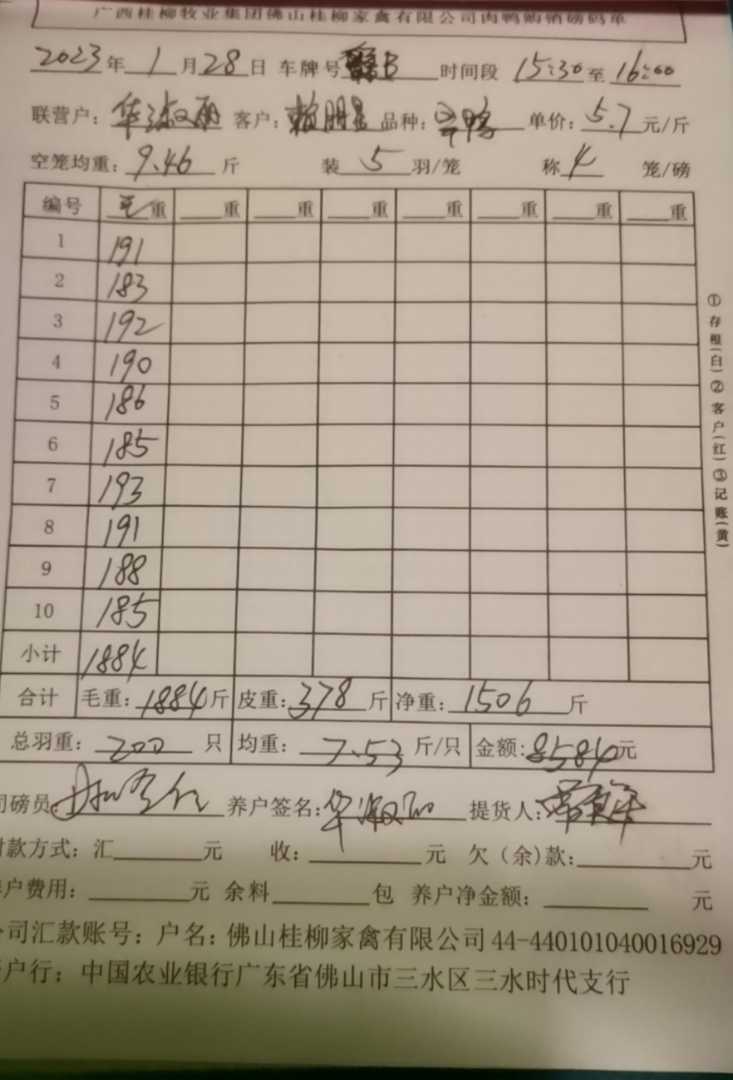 广西桂柳牧业集团佛山桂柳家禽有限公司肉鸭购销磅码单
2023年 1月28日 车牌号 时间段 15:30至16:00
联营户: 华淑丽 客户: 赖明星 品种: 单价: 5.7元/斤
空笼均重: 9.46斤 装5羽/笼 称4笼/磅
编号 毛重 重 重 重 重 重 重 重
1 191
2 183
3 192
4 190
5 186
6 185
7 193
8 191
9 188
10 185
小计 1884
合计 毛重: 1884斤 皮重: 378斤 净重: 1506斤
总羽重: 200只 均重: 7.53斤/只 金额: 8584元
司磅员: 养户签名: 华淑丽 提货人:
付款方式: 汇 元 收: 元 欠(余)款: 元
养户费用: 元 余料 包 养户净金额: 元
公司汇款账号: 户名: 佛山桂柳家禽有限公司 44-440101040016929
开户行: 中国农业银行广东省佛山市三水区三水时代支行
①存根(白)②客户(红)③记账(黄)